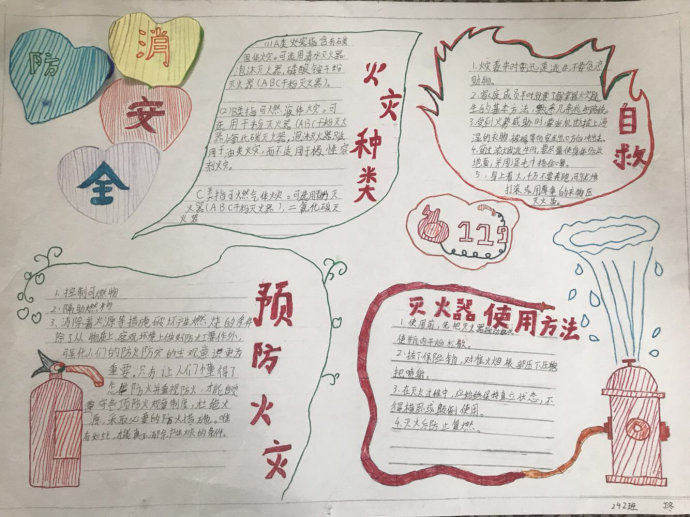 消
防
安
全
(1)A类火灾指含有碳
固体火灾。可选用清水灭火器,
泡沫灭火器,磷酸铵盐干粉
灭火器(ABC干粉灭火器)。
(2)B类指可燃液体火灾。可
选用干粉灭火器(ABC干粉灭
火器)
用于油类火灾,而不适用于极性溶
剂火灾。
C类指可燃气体火灾。可选用干粉灭
火器(ABC干粉灭火器),二氧化碳灭
火器
火灾种类
自救
1.火灾袭来时要迅速逃生不要贪恋
财物。
生的基本方法
3.受到火势威胁时要当机立断披上浸
湿的衣物、被褥等向安全出口方向冲出去。
4.穿过浓烟逃生时,要尽量使身体贴近
地面,并用湿毛巾捂住口鼻。
5.身上着火,千万不要奔跑,可就地
打滚或用厚重的衣物压
灭火苗。
119
预防火灾
1.控制可燃物
2.隔助燃物
3.消除着火源等措施破坏燃烧的条件
强化人们的防火防灾的主观意识更为
重要。只有让人们懂得了
怎样防火并重视防火,才能自觉
遵守各项防火规章制度,杜绝火
源,采取必要的防火措施。唯
有如此,才能真正消除产生火灾的条件。
灭火器使用方法
1.使用前,先把灭火器
使筒内干粉松散。
2.拔下保险销,对准火焰根部压下压把
把喷射。
3.在灭火过程中,应始终保持直立状态,不
得横卧或颠倒使用。
4.灭火后防止复燃。
242班